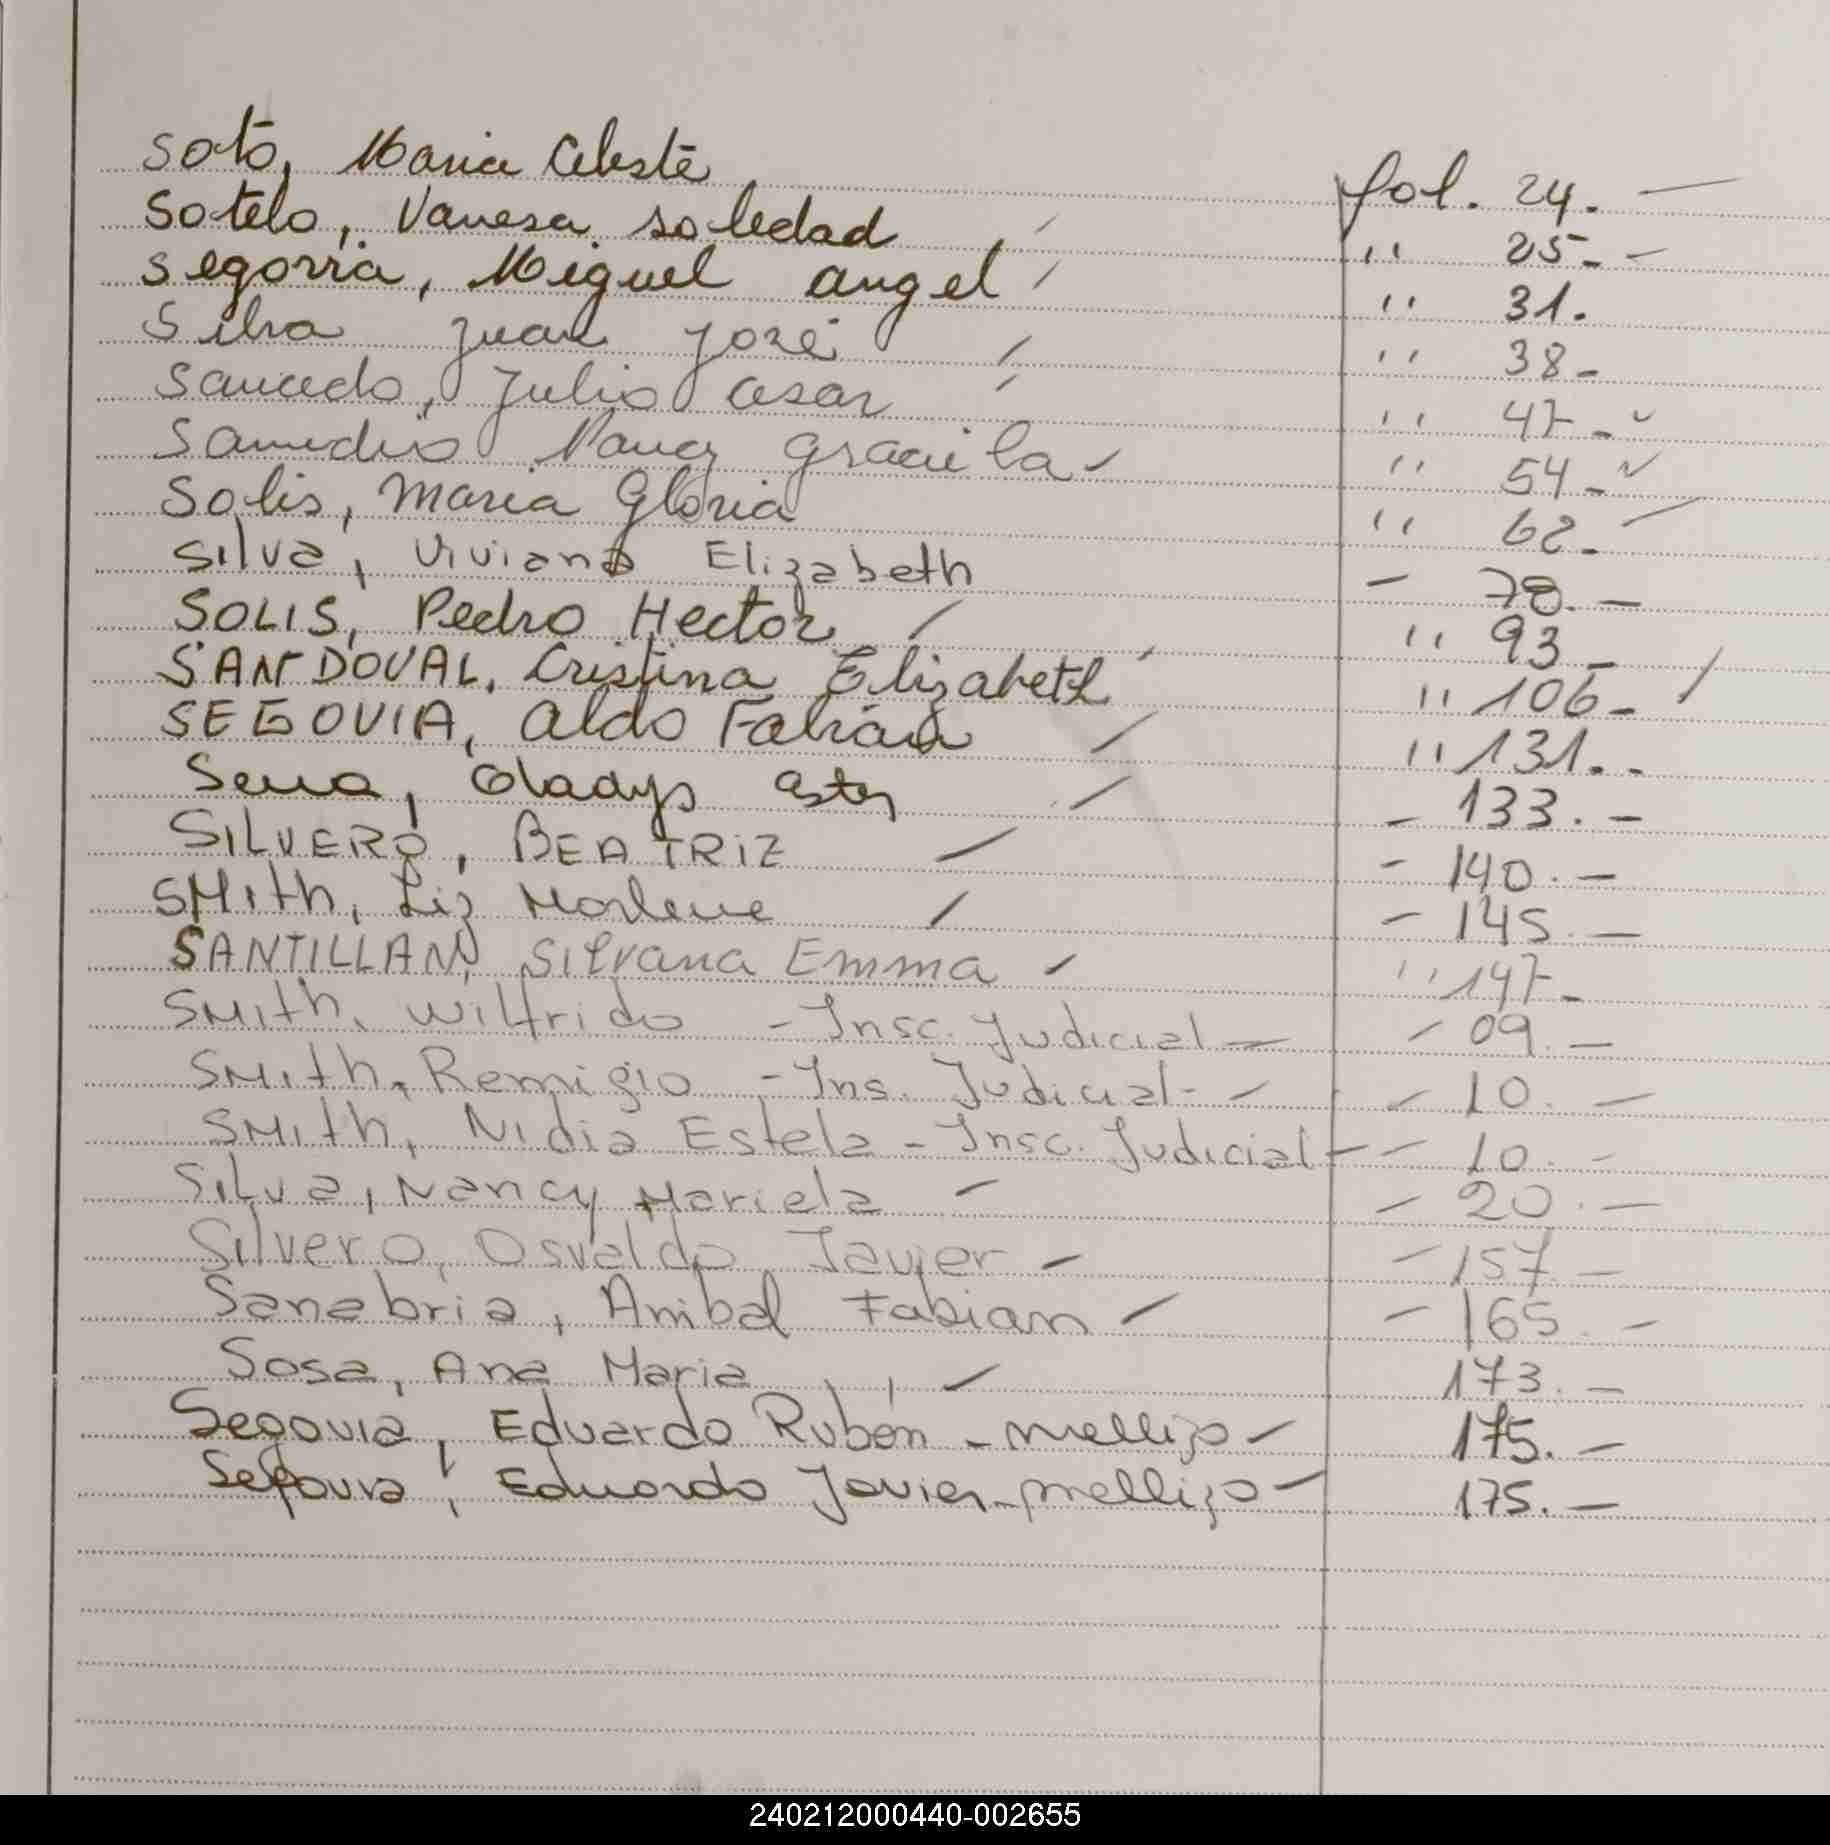 Soto, Maria Celeste fol. 24. —
Sotelo, Vanesa Soledad / '' 25 - —
Segovia, Miguel angel / '' 31.
Silva Juan José / '' 38 -
Saucedo, Julio Cesar / '' 47 -
Samudio Nancy Graciela / '' 54 -
Solis, Maria Gloria '' 62 - —
Silva, Viviana Elizabeth — 78. —
SOLIS, Pedro Hector / '' 93 -
SANDOVAL, Cristina Elizabeth / '' 106 - /
SEGOVIA, Aldo Fabian / '' 131. -
Sena, Gladys Ester / - 133. —
SILVERO, BEATRIZ / - 140. —
SMith, Liz Marlene / - 145. —
SANTILLAN, Silvana Emma / '' 147 -
SMith, Wilfrido - Insc. Judicial — - 09. —
SMith, Remigio - Ins. Judicial - / - 10. —
SMith, Nidia Estela - Insc. Judicial — - 10. -
Silva, Nancy Mariela / - 20. —
Silvero, Osvaldo Javier / - 157. —
Sanabria, Anibal Fabian / - 165. —
Sosa, Ana Maria / 173. —
Segovia, Eduardo Rubén - mellizo / 175. —
Segovia, Eduardo Javier - mellizo — 175. —
240212000440-002655